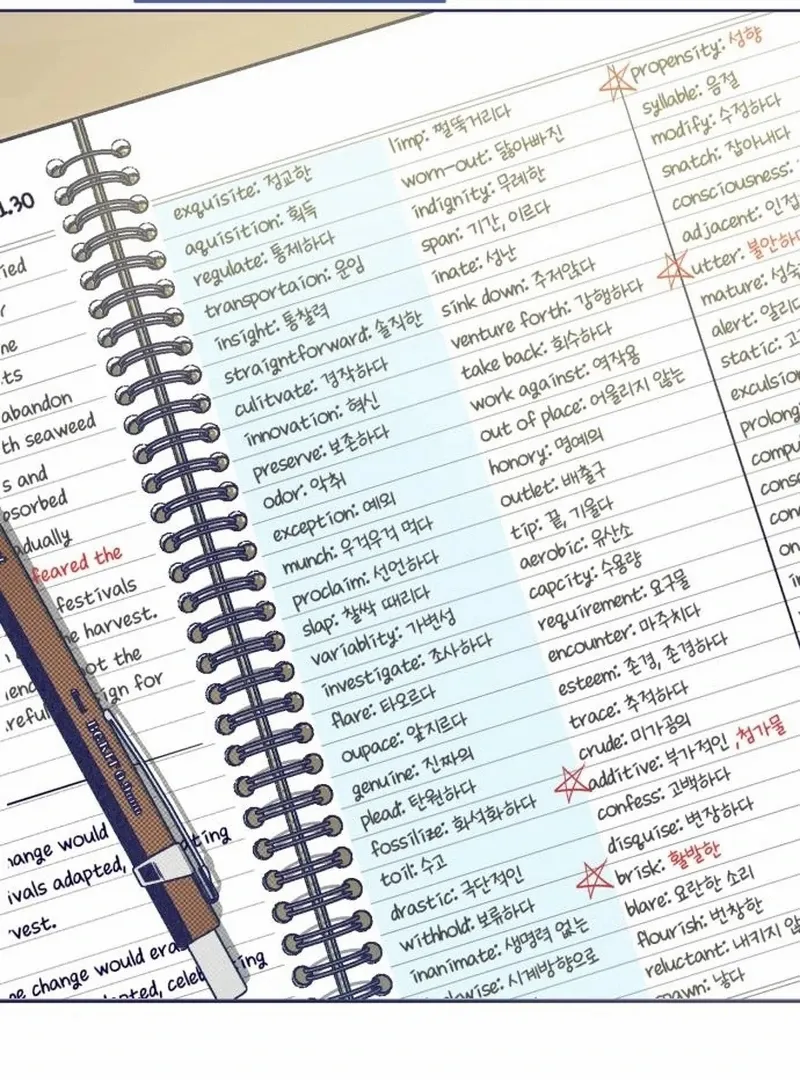 1.30
abandon
th seaweed
s and
feared the
festivals
harvest.
ot the
ign for
hange would
ivals adapted,
vest.
change would
exquisite: 정교한
aquisition: 획득
regulate: 통제하다
transportaion: 운임
insight: 통찰력
straightforward: 솔직한
culitvate: 경작하다
innovation: 혁신
preserve: 보존하다
odor: 악취
exception: 예외
munch: 우걱우걱 먹다
proclaim: 선언하다
slap: 찰싹 때리다
variablity: 가변성
investigate: 조사하다
flare: 타오르다
oupace: 앞지르다
genuine: 진짜의
plead: 탄원하다
fossilize: 화석화하다
toil: 수고
drastic: 극단적인
withhold: 보류하다
inanimate: 생명력 없는
wise: 시계방향으로
limp: 쩔뚝거리다
worn-out: 닳아빠진
indignity: 무례한
span: 기간, 이르다
inate: 성난
sink down: 주저앉다
venture forth: 강행하다
take back: 회수하다
work against: 역작용
out of place: 어울리지 않는
honory: 명예의
outlet: 배출구
tip: 끝, 기울다
aerobic: 유산소
capcity: 수용량
requirement: 요구물
encounter: 마주치다
esteem: 존경, 존경하다
trace: 추적하다
crude: 미가공의
additive: 부가적인 ,첨가물
confess: 고백하다
disguise: 변장하다
brisk: 활발한
blare: 요란한 소리
flourish: 번창한
reluctant: 내키지
pawn: 낳다
propensity: 성향
syllable: 음절
modify: 수정하다
snatch: 잡아내다
consciousness:
adjacent: 인접
utter: 불안하
mature: 성숙
alert: 알리
static: 고
exculsion
prolong
compu
cons
con
on
in